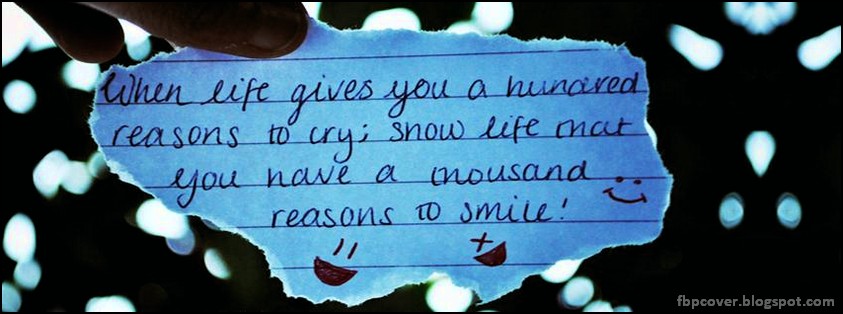 When life gives you a hundred
reasons to cry; show life that
you have a thousand
reasons to smile!
fbpcover.blogspot.com